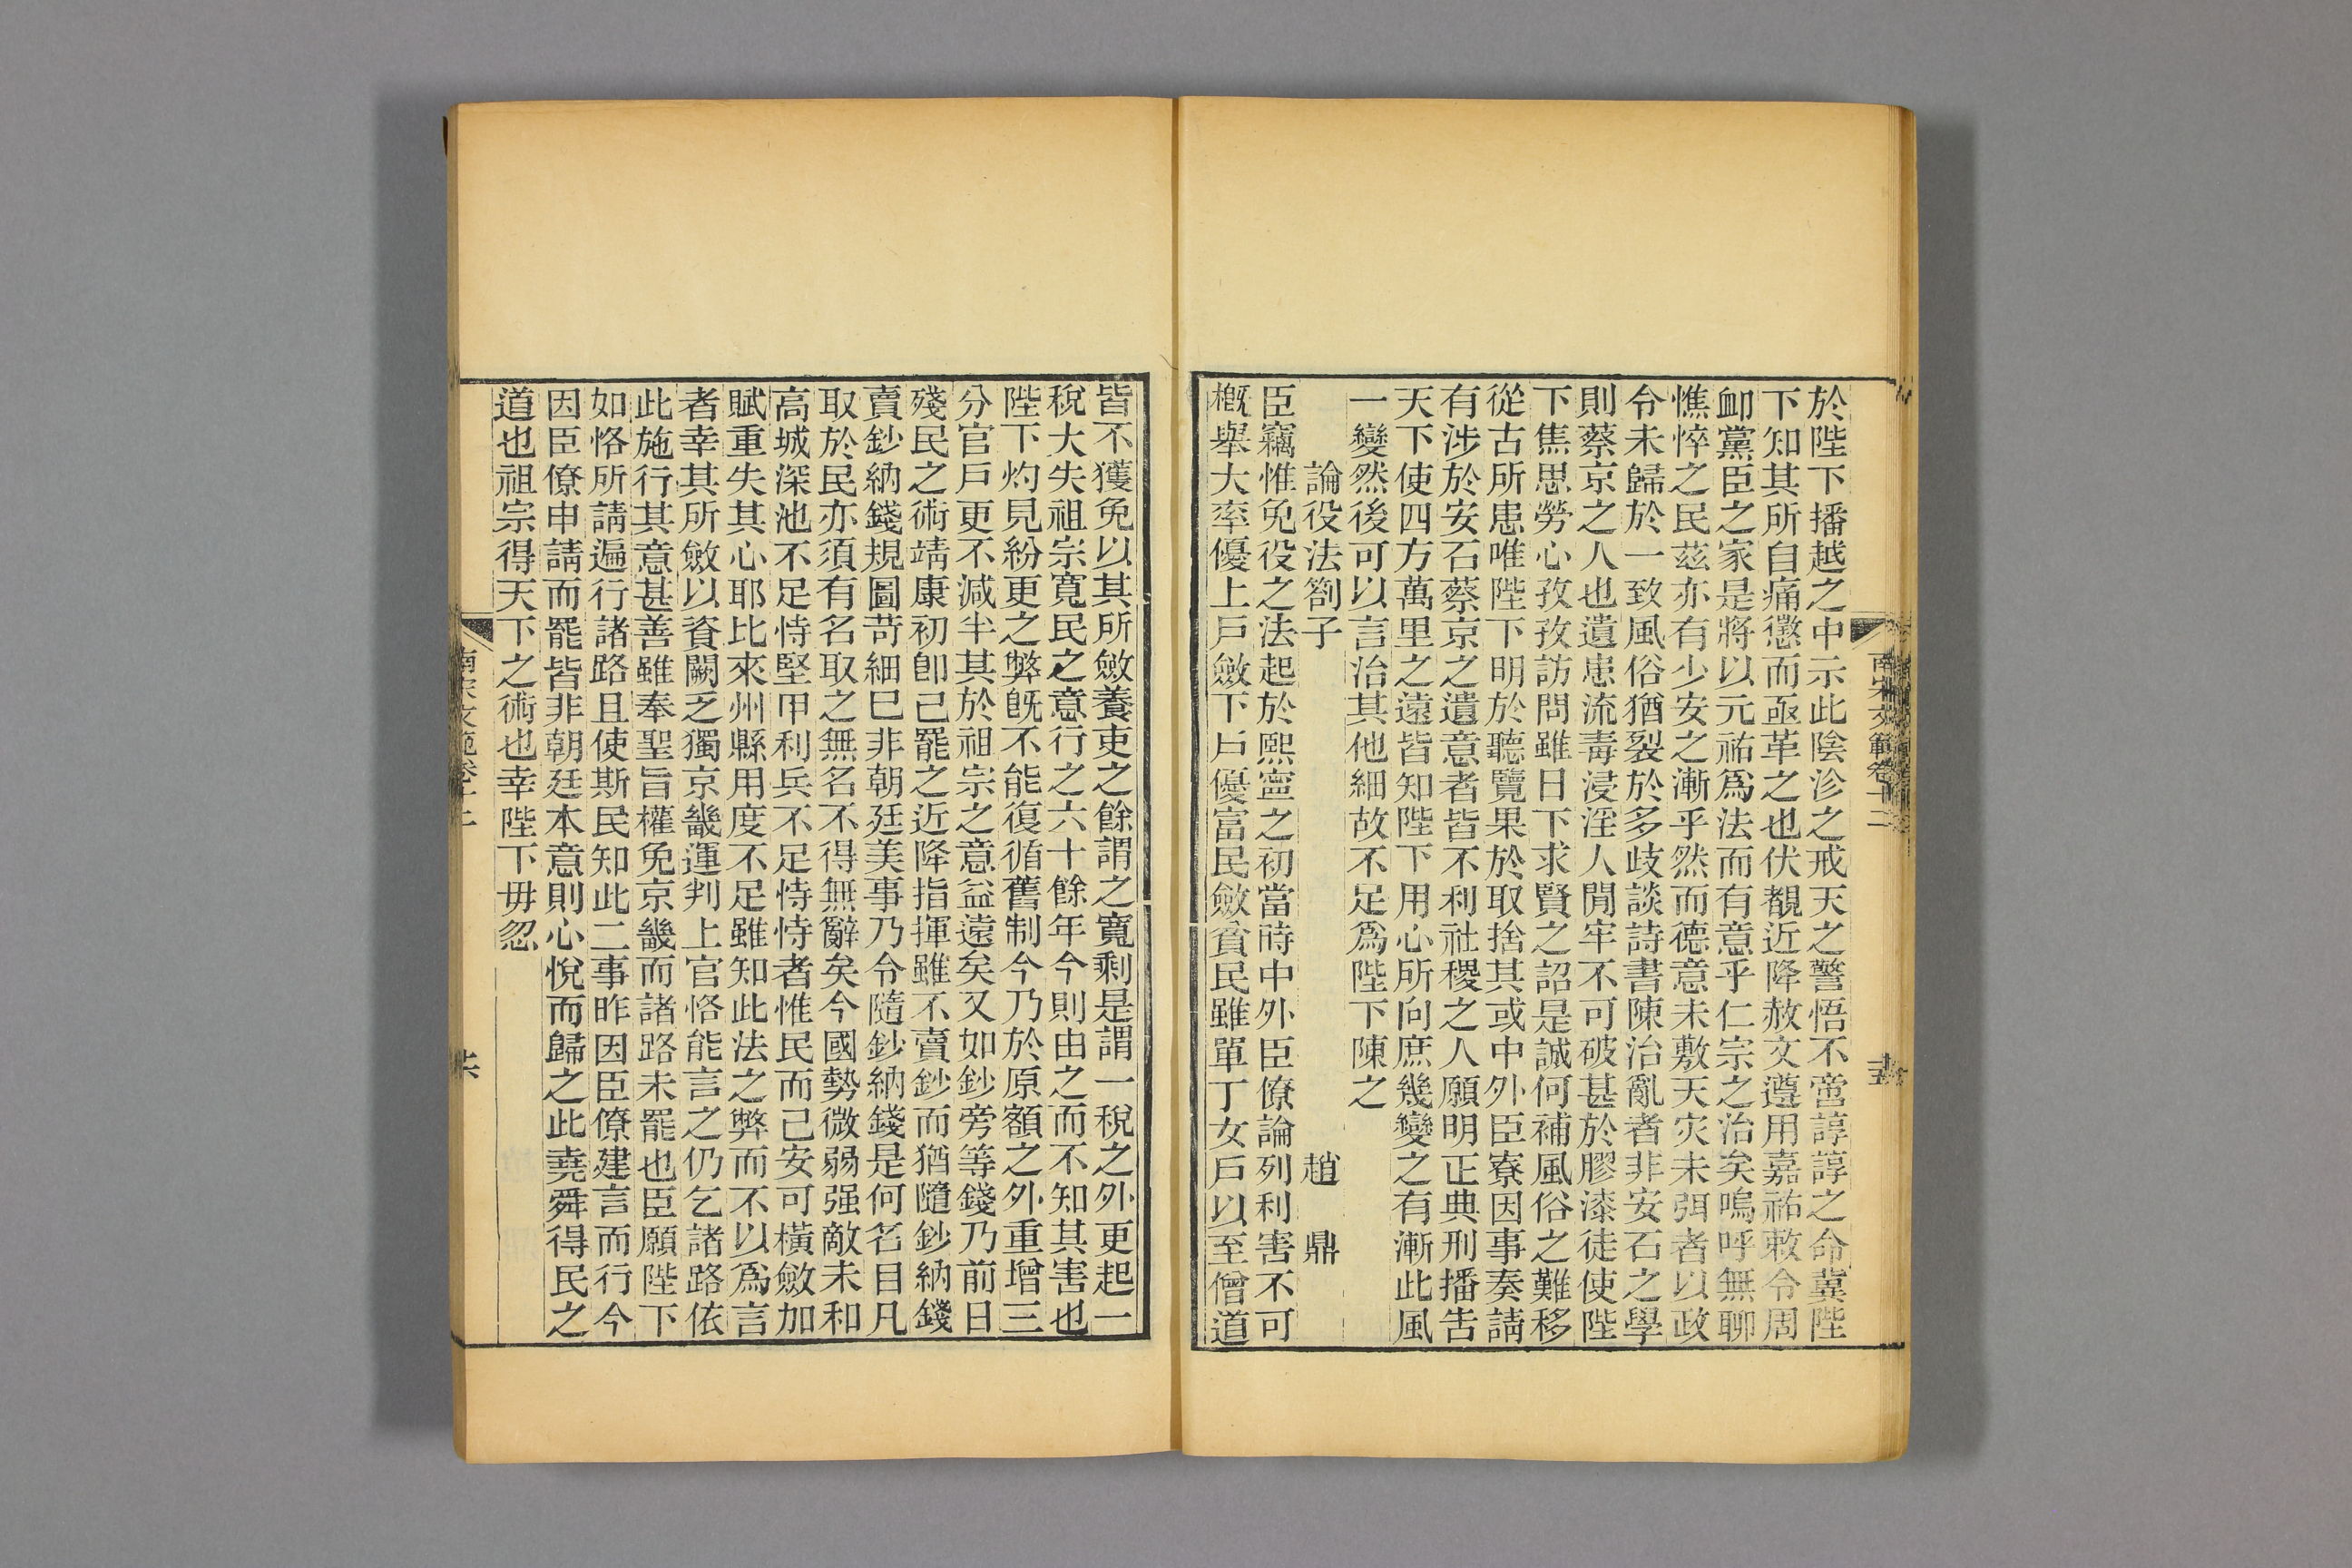 於陛下播越之中示此陰沴之戒天之警悟不啻諄諄之命冀陛
下知其所自痛懲而亟革之也伏覩近降赦文遵用嘉祐敕令周
卹黨臣之家是將以元祐爲法而有意乎仁宗之治矣嗚呼無聊
憔悴之民茲亦有少安之漸乎然而德意未敷天灾未弭者以政
令未歸於一致風俗猶裂於多歧談詩書陳治亂者非安石之學
則蔡京之人也遺患流毒浸淫人閒牢不可破甚於膠漆徒使陛
下焦思勞心孜孜訪問雖日下求賢之詔是誠何補風俗之難移
從古所患唯陛下明於聽覽果於取捨其或中外臣寮因事奏請
有涉於安石蔡京之遺意者皆不利社稷之人願明正典刑播吿
天下使四方萬里之遠皆知陛下用心所向庶幾變之有漸此風
一變然後可以言治其他細故不足爲陛下陳之
論役法劄子 趙鼎
臣竊惟免役之法起於熙寧之初當時中外臣僚論列利害不可
槪舉大率優上戶斂下戶優富民斂貧民雖單丁女戶以至僧道
南宋文範卷十二 十五
皆不獲免以其所斂養吏之餘謂之寬剩是謂一稅之外更起一
稅大失祖宗寬民之意行之六十餘年今則由之而不知其害也
陛下灼見紛更之弊旣不能復循舊制今乃於原額之外重增三
分官戶更不減半其於祖宗之意益遠矣又如鈔旁等錢乃前日
殘民之術靖康初卽已罷之近降指揮雖不賣鈔而猶隨鈔納錢
賣鈔納錢規圖苛細已非朝廷美事乃令隨鈔納錢是何名目凡
取於民亦須有名取之無名不得無辭矣今國勢微弱强敵未和
高城深池不足恃堅甲利兵不足恃恃者惟民而已安可橫斂加
賦重失其心耶比來州縣用度不足雖知此法之弊而不以爲言
者幸其所斂以資闕乏獨京畿運判上官恪能言之仍乞諸路依
此施行其意甚善雖奉聖旨權免京畿而諸路未罷也臣願陛下
如恪所請遍行諸路且使斯民知此二事昨因臣僚建言而行今
因臣僚申請而罷皆非朝廷本意則心悅而歸之此堯舜得民之
道也祖宗得天下之術也幸陛下毋忽
南宋文範卷十二